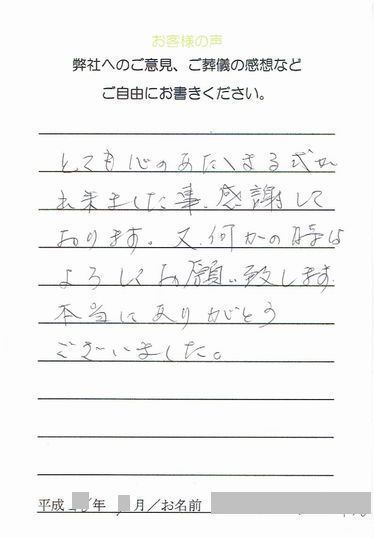 お客様の声
弊社へのご意見、ご葬儀の感想など
ご自由にお書きください。
とても心のあたたまる式が
出来ました事、感謝して
おります。又、何かの時は
よろしくお願い致します
本当にありがとう
ございました。
平成 年 月/お名前